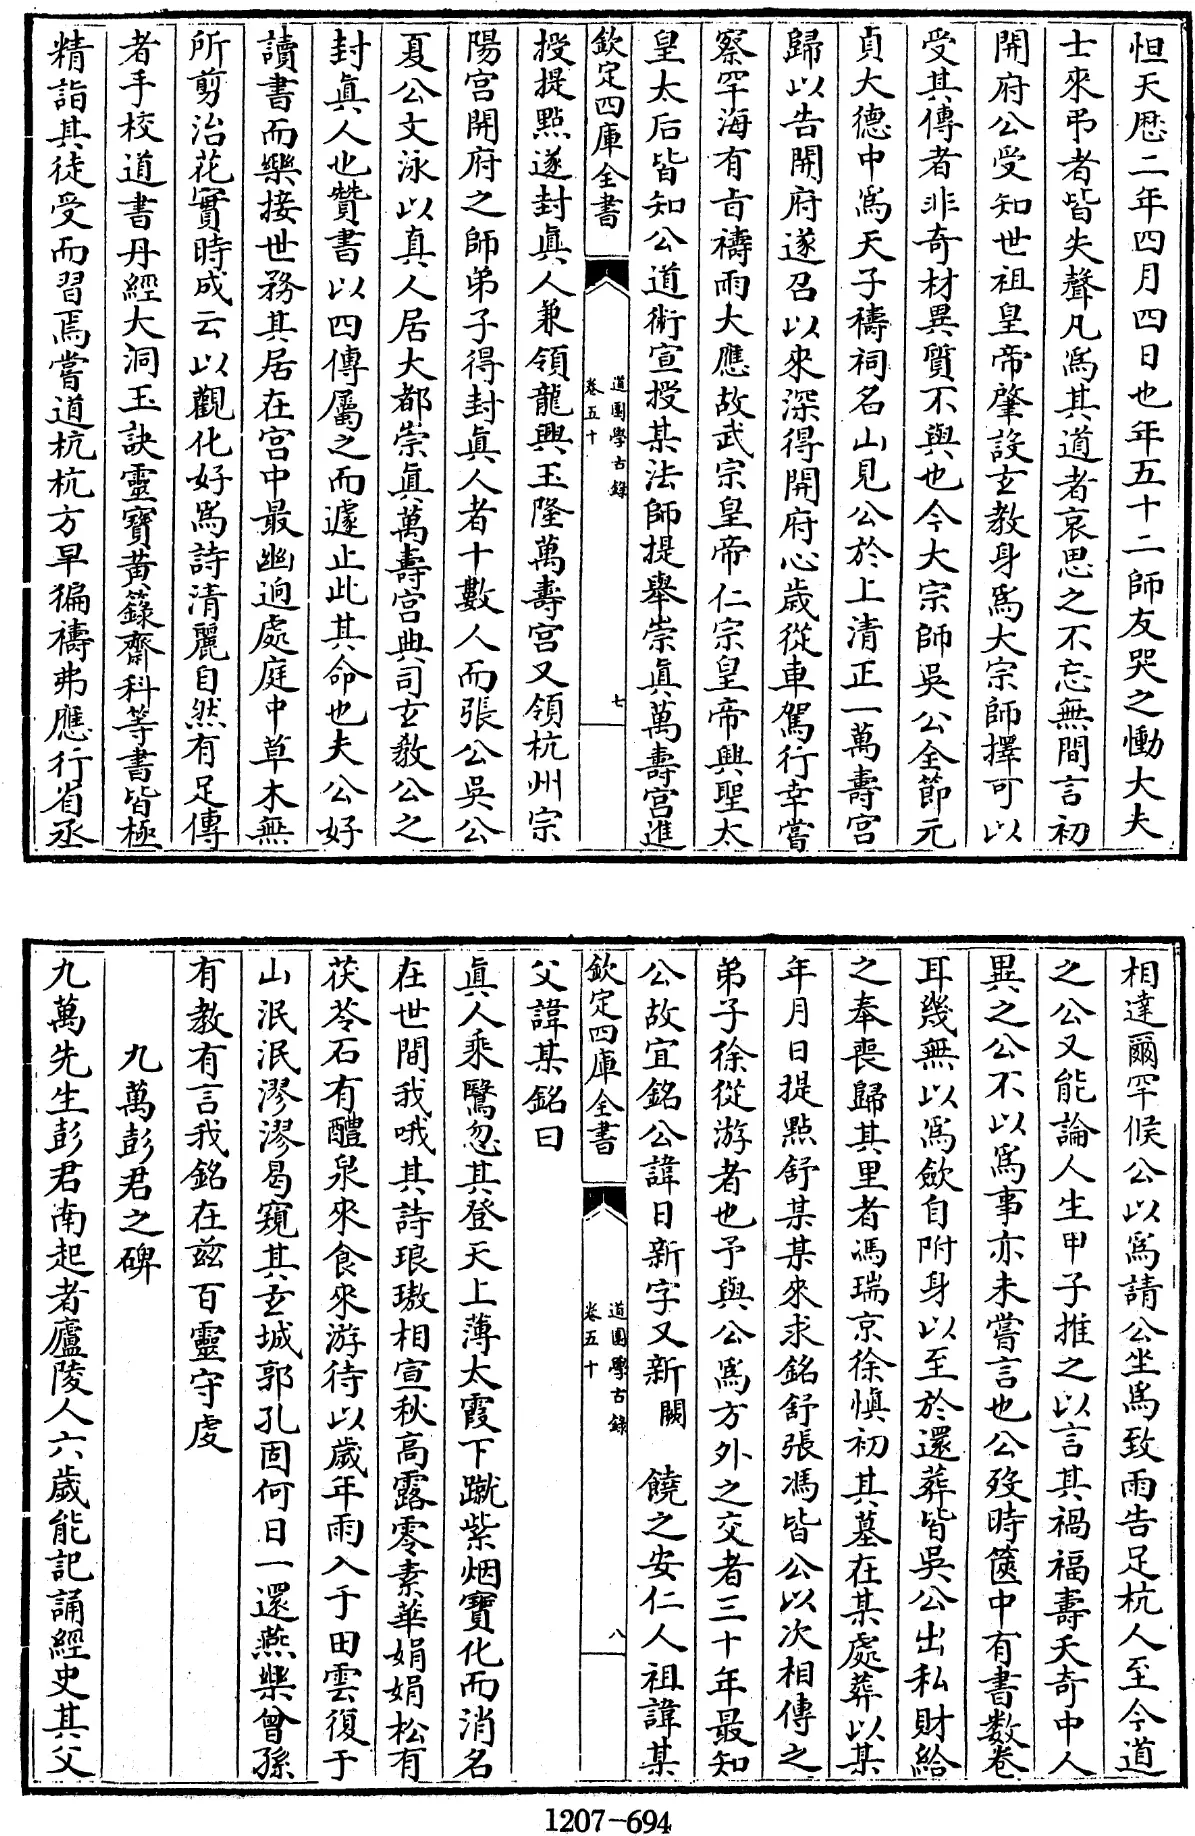 怛天厯二年四月四日也年五十二師友哭之慟大夫
士來弔者皆失聲凡爲其道者哀思之不忘無間言初
開府公受知世祖皇帝肇設玄教身爲大宗師擇可以
受其傳者非奇材異質不與也今大宗師吳公全節元
貞大德中爲天子禱祠名山見公於上清正一萬壽宫
歸以告開府遂召以來深得開府心歲從車駕行幸嘗
察罕海有㫖禱雨大應故武宗皇帝仁宗皇帝興聖太
皇太后皆知公道術宣授某法師提舉崇眞萬壽宫進
欽定四庫全書
道園學古錄
卷五十
七
授提㸃遂封眞人兼領龍興玉隆萬壽宫又領杭州宗
陽宫開府之師弟子得封眞人者十數人而張公吳公
夏公文泳以真人居大都崇眞萬壽宫典司玄教公之
封眞人也贊書以四傳屬之而遽止此其命也夫公好
讀書而樂接世務其居在宫中最幽迥處庭中草木無
所剪治花實時成云以觀化好爲詩清麗自然有足傳
者手校道書丹經大洞玉訣靈寶黄籙齋科等書皆極
精詣其徒受而習焉嘗道杭杭方旱徧禱弗應行省丞
相達爾罕候公以爲請公坐爲致雨告足杭人至今道
之公又能論人生甲子推之以言其禍福壽夭奇中人
異之公不以爲事亦未嘗言也公歿時篋中有書數卷
耳幾無以爲斂自附身以至於還葬皆吳公出私財給
之奉喪歸其里者馮瑞京徐愼初其墓在某處葬以某
年月日提㸃舒某某來求銘舒張馮皆公以次相傳之
弟子徐從游者也予與公爲方外之交者三十年最知
公故宜銘公諱日新字又新 闕 饒之安仁人祖諱某
欽定四庫全書
道園學古錄
卷五十
八
父諱某銘曰
眞人乘鷖忽其登天上薄太霞下蹴紫烟寶化而消名
在世間我哦其詩琅璈相宣秋高露零素華娟娟松有
茯苓石有醴泉來食來游待以歲年雨入于田雲復于
山泯泯漻漻曷窺其玄城郭孔固何日一還燕樂曾孫
有教有言我銘在兹百靈守䖍
九萬彭君之碑
九萬先生彭君南起者廬陵人六歲能記誦經史其父
1207-694